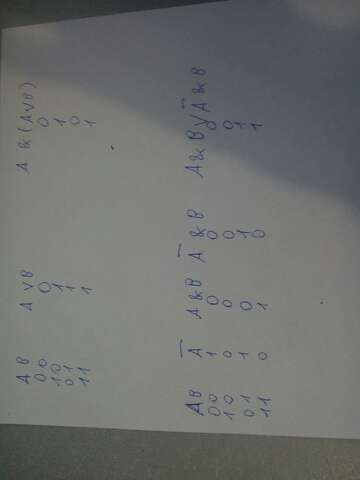 A B A v B A & (A v B)
0 0 0 0
1 0 1 1
0 1 1 0
1 1 1 1
A B Ā A & B Ā & B A & B V Ā & B
0 0 1 0 0 0
1 0 0 0 0 0
0 1 1 0 1 1
1 1 0 1 0 1